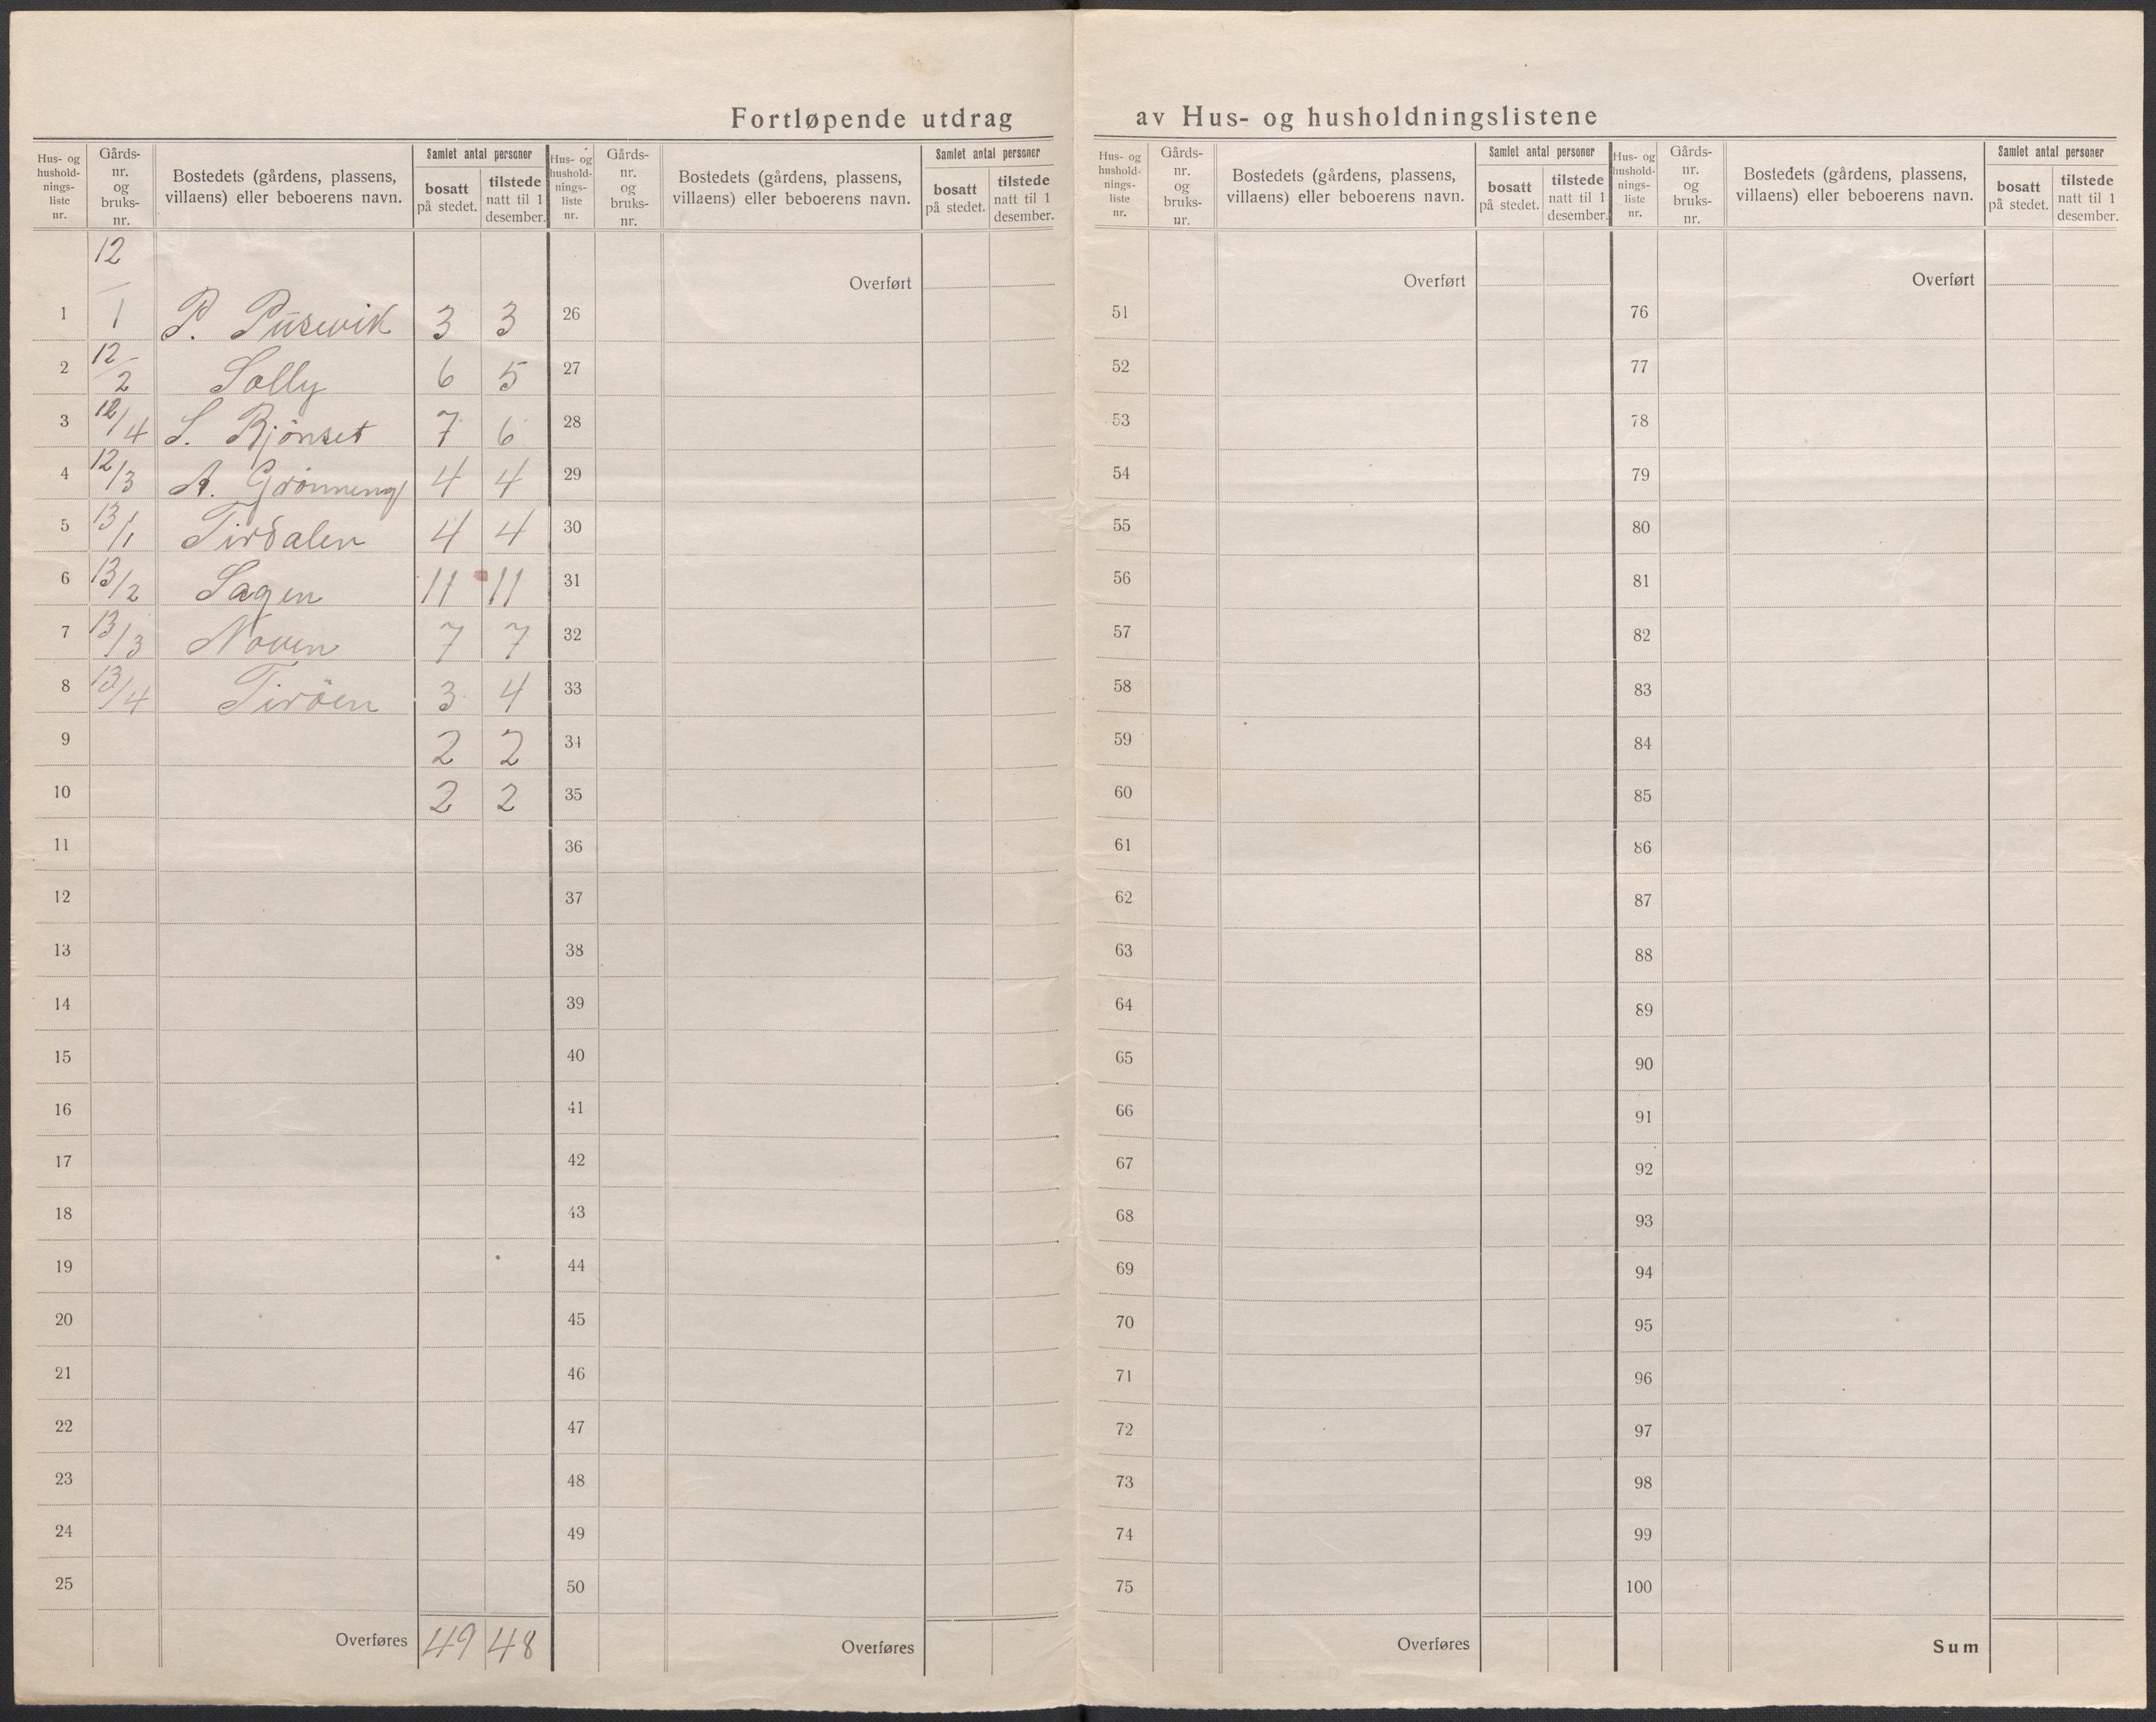 Fortløpende utdrag av Hus- og husholdningslistene
Hus- og hushold-nings-liste nr. Gårds-nr. og bruks-nr. Bostedets (gårdens, plassens, villaens) eller beboerens navn. Samlet antal personer bosatt på stedet. tilstede natt til 1 desember.
1 12/1 P. Pusevik 3 3
2 12/2 Solly 6 5
3 12/4 S. Rjönset 7 6
4 12/3 A. Grönneng 4 4
5 13/1 Tirdalen 4 4
6 13/2 Sagen 11 11
7 13/3 Noven 7 7
8 13/4 Tiröen 3 4
9 2 2
10 2 2
11
12
13
14
15
16
17
18
19
20
21
22
23
24
25
Overføres 49 48
Hus- og hushold-nings-liste nr. Gårds-nr. og bruks-nr. Bostedets (gårdens, plassens, villaens) eller beboerens navn. Samlet antal personer bosatt på stedet. tilstede natt til 1 desember.
Overført
26
27
28
29
30
31
32
33
34
35
36
37
38
39
40
41
42
43
44
45
46
47
48
49
50
Overføres
Hus- og hushold-nings-liste nr. Gårds-nr. og bruks-nr. Bostedets (gårdens, plassens, villaens) eller beboerens navn. Samlet antal personer bosatt på stedet. tilstede natt til 1 desember.
Overført
51
52
53
54
55
56
57
58
59
60
61
62
63
64
65
66
67
68
69
70
71
72
73
74
75
Overføres
Hus- og hushold-nings-liste nr. Gårds-nr. og bruks-nr. Bostedets (gårdens, plassens, villaens) eller beboerens navn. Samlet antal personer bosatt på stedet. tilstede natt til 1 desember.
Overført
76
77
78
79
80
81
82
83
84
85
86
87
88
89
90
91
92
93
94
95
96
97
98
99
100
Sum